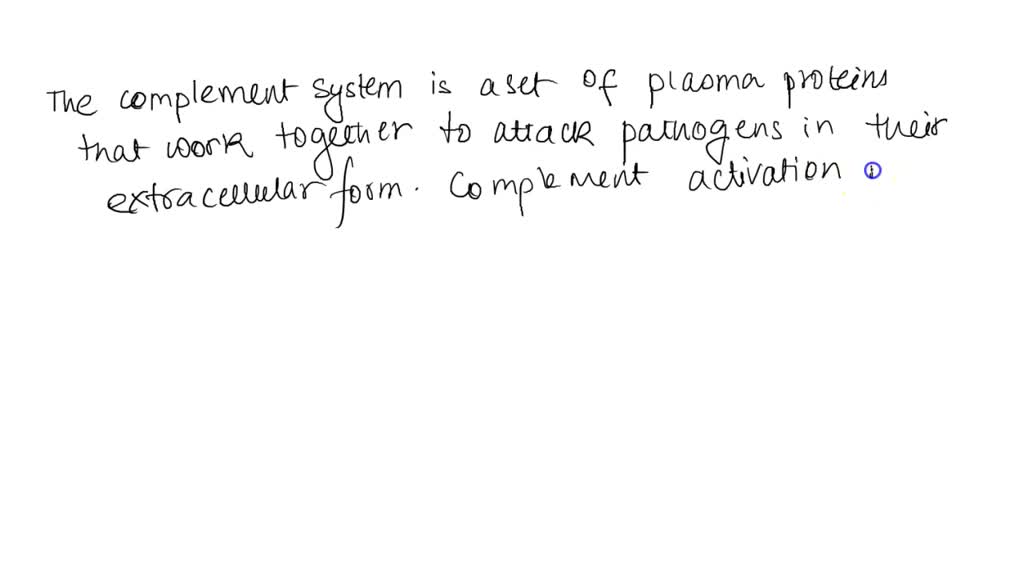 The complement system is a set of plasma proteins
that work together to attack pathogens in their
extracellular form. Complement activation